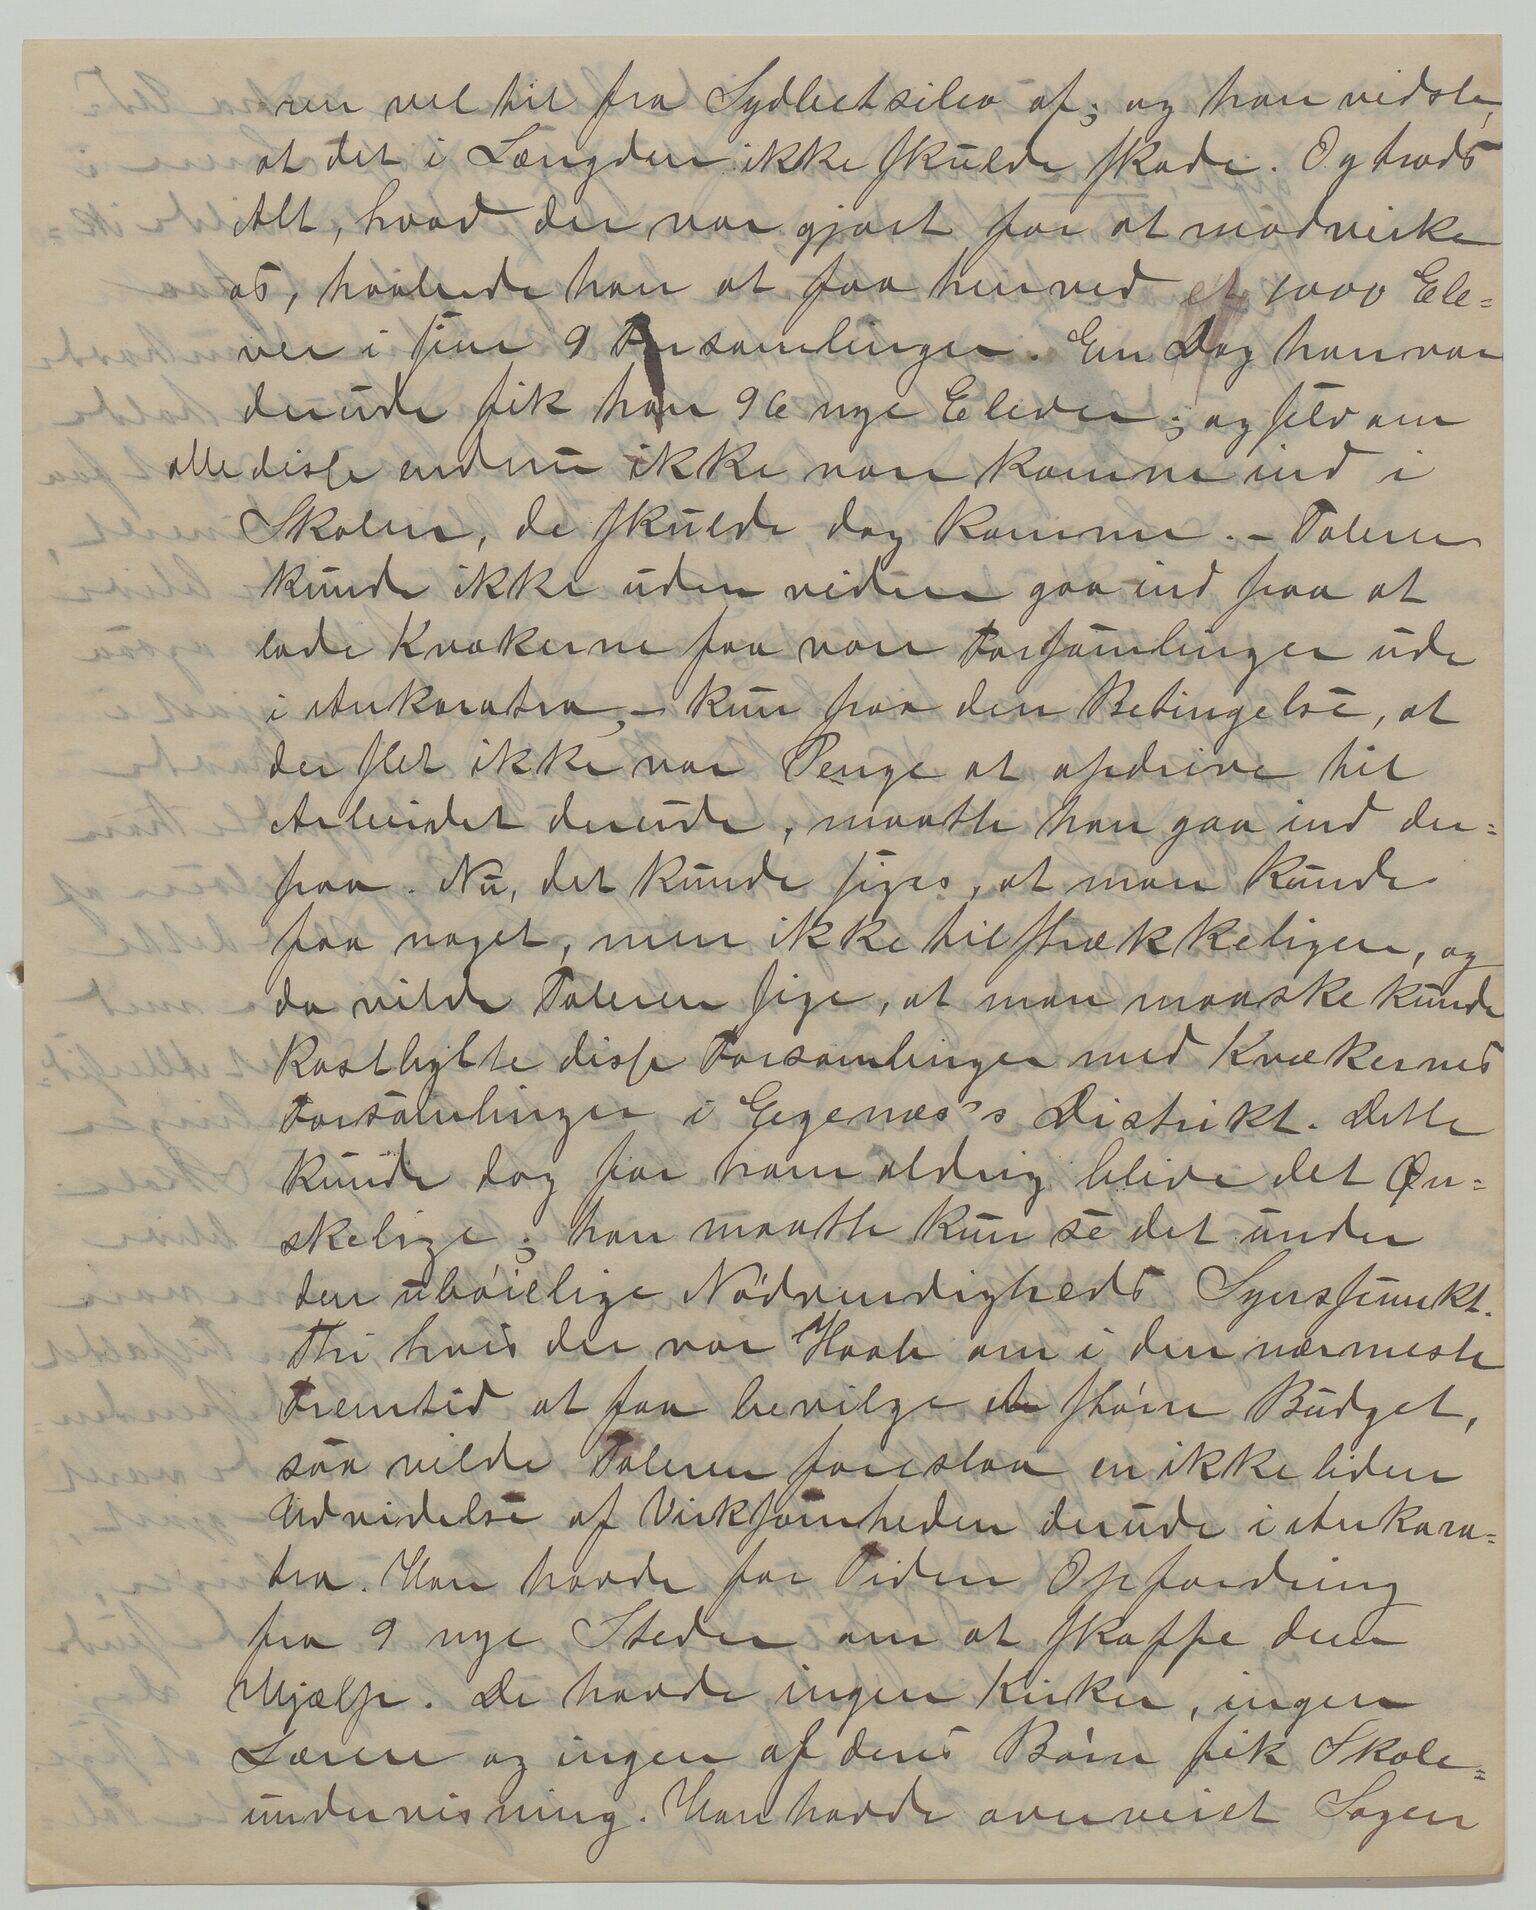 ren vel til fra Sydbetsileo af; og han vidste,
at det i Længden ikke skulde skade. Og trods
Alt, hvad der var gjort for at modvirke
os, haabede han at faa henved et 1000 Ele=
ver i sine 9 Forsamlinger. Een Dag han var
derude fik han 96 nye Elever; og selv om
alle disse endnu ikke vare komne ind i
Skolen, de skulde dog komme. – Taleren
kunde ikke uden videre gaa ind paa at
lade Kvækerne faa vore Forsamlinger ude
i Ankaratra, – kun paa den Betingelse, at
der slet ikke var Penge at opdrive til
Arbeidet derude, maatte han gaa ind der=
paa. Nu, det kunde siges, at man kunde
faa noget, men ikke tilstrækkeligen, og
da vilde Taleren sige, at man maaske kunde
bortbytte disse Forsamlinger med Kvækernes
Forsamlinger i Egenæs's Distrikt. Dette
kunde dog for ham aldrig blive det Øn=
skelige; han maatte kun se det under
den ubøielige Nødvendigheds Synspunkt.
Thi hvis der var Haab om i den nærmeste
Fremtid at faa bevilge et større Budget,
saa vilde Taleren foreslaa en ikke liden
Udvidelse af Virksomheden derude i Ankara=
tra. Han havde for Tiden Opfordring
fra 9 nye Steder om at skaffe dem
Hjælp. De havde ingen Kirker, ingen
Lærere og ingen af deres Børn fik Skole=
undervisning. Han havde overveiet Sagen